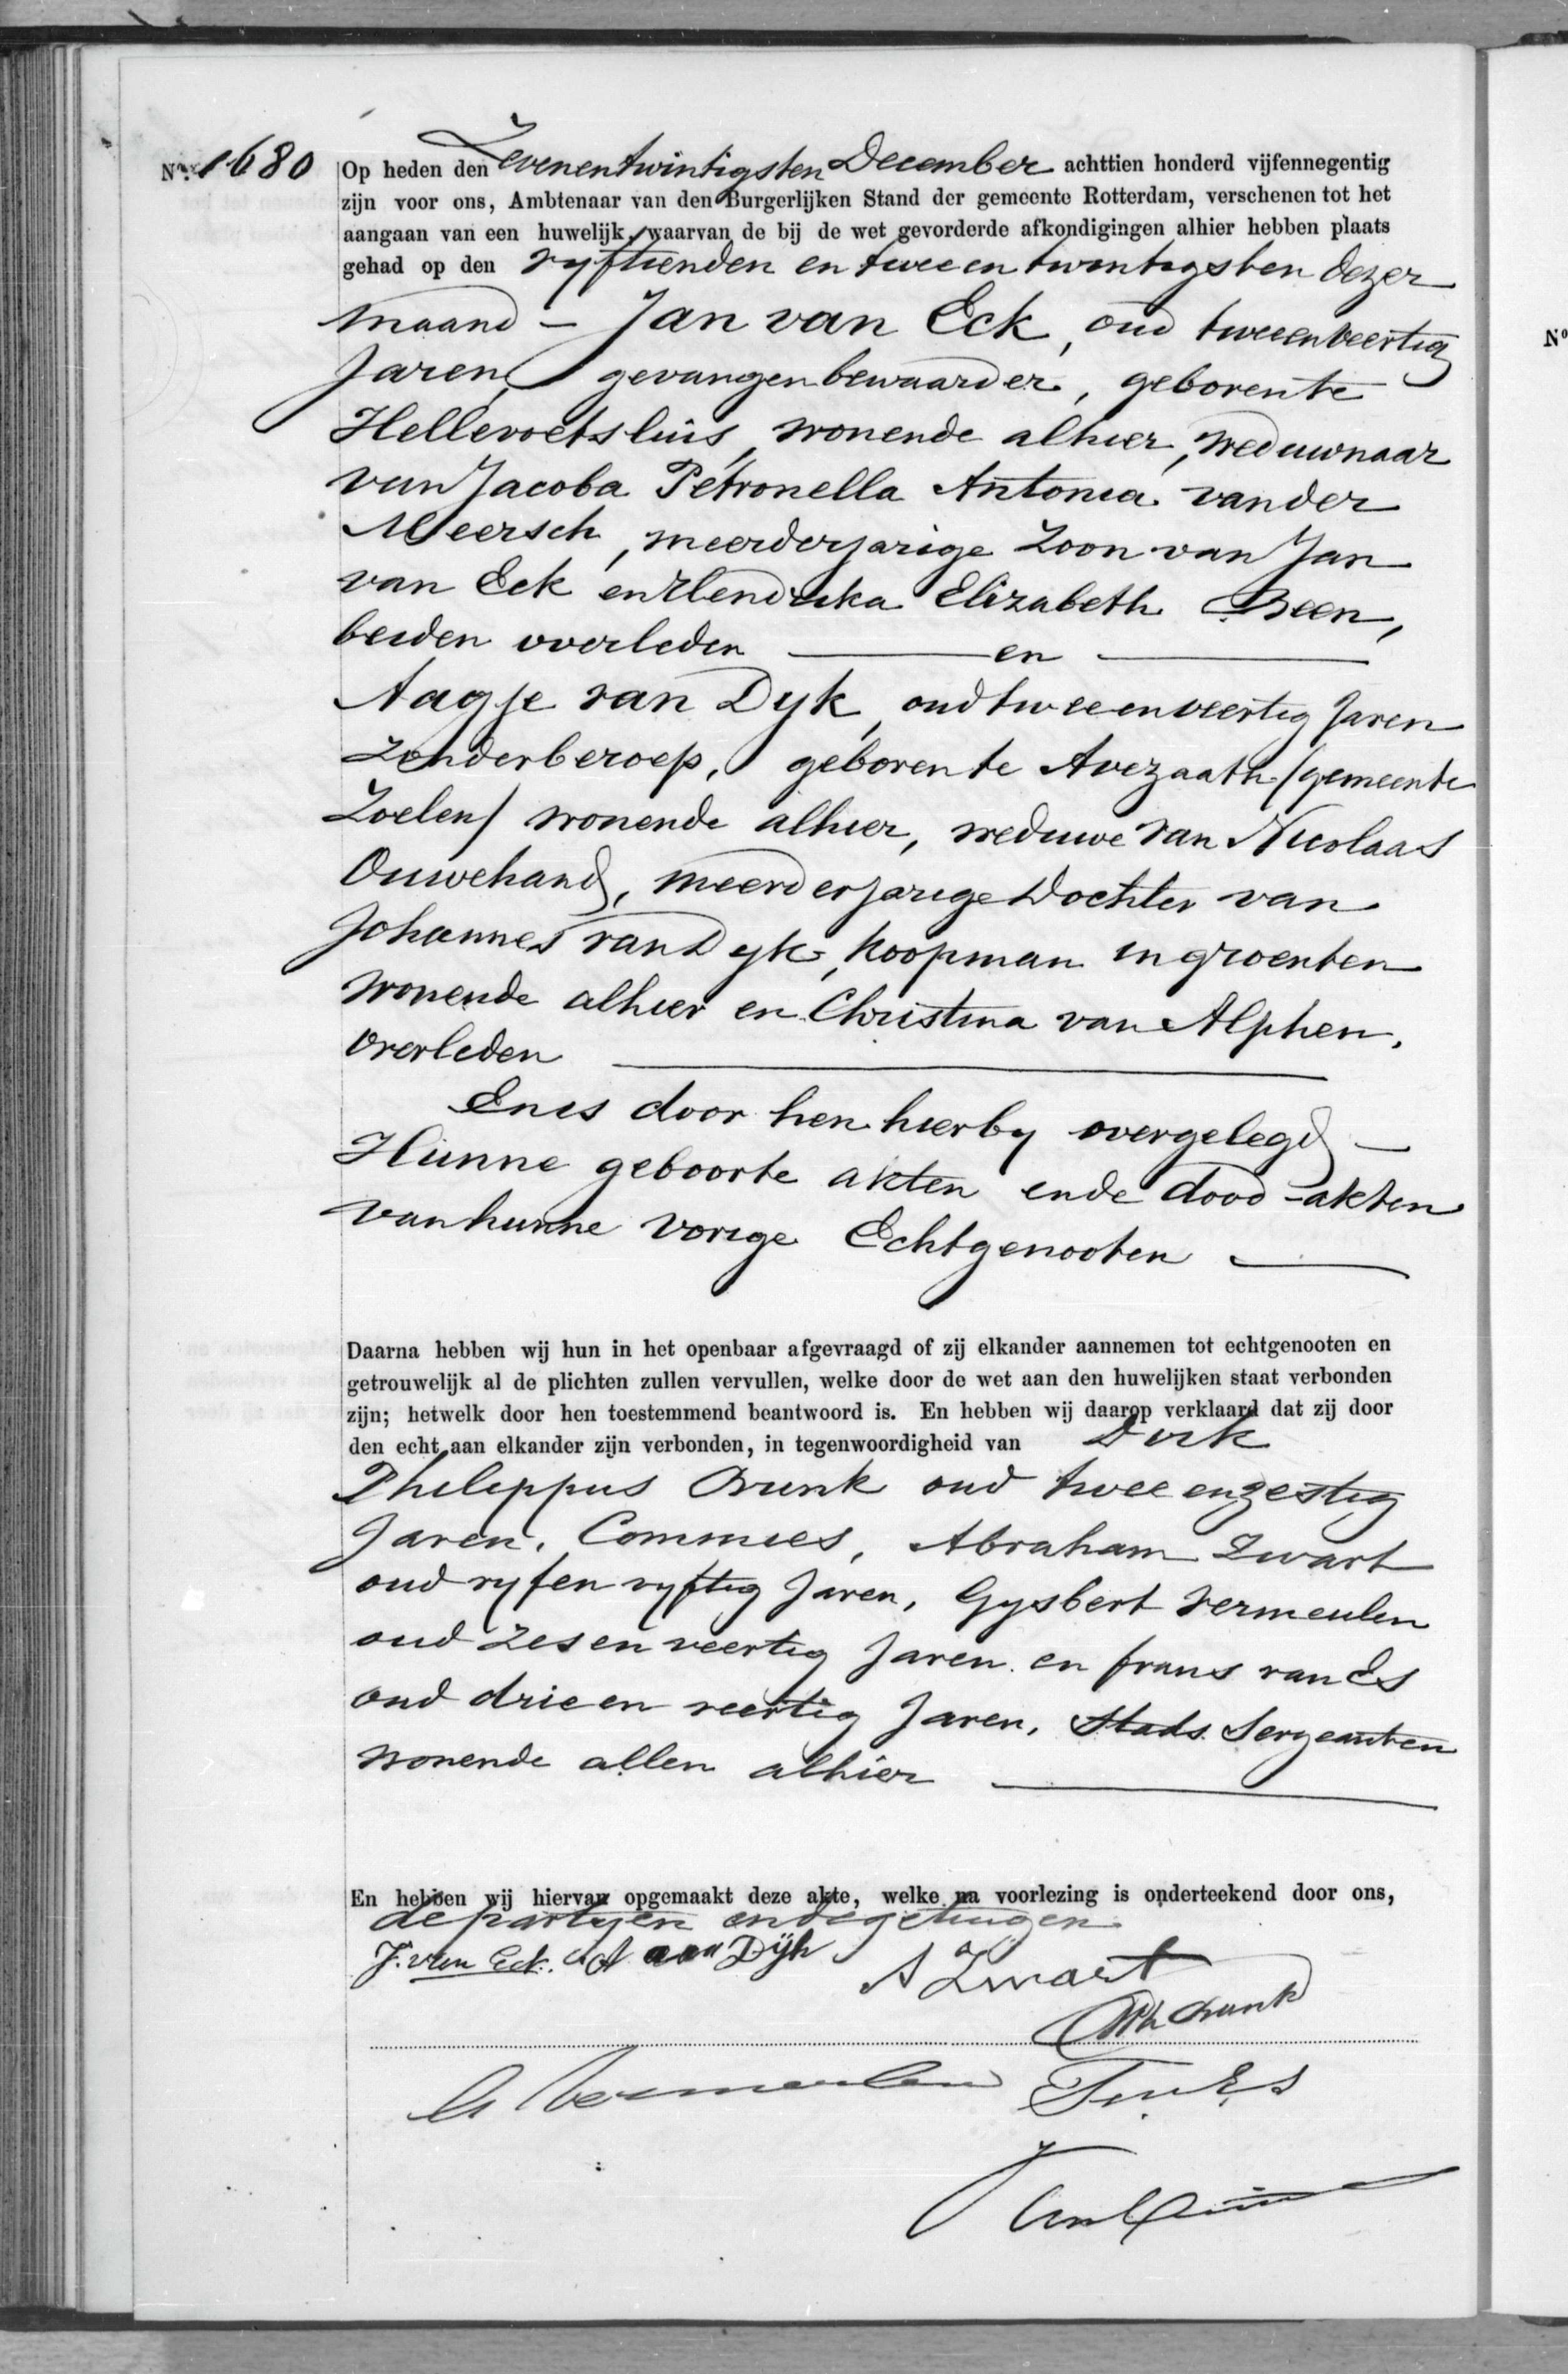 No. 1680 Op heden den Zevenentwintigsten December achttien honderd vijfennegentig
zijn voor ons, Ambtenaar van den Burgerlijken Stand der gemeente Rotterdam, verschenen tot het
aangaan van een huwelijk, waarvan de bij de wet gevorderde afkondigingen alhier hebben plaats
gehad op den vyftienden en tweeentwintigsten dezer
maand – Jan van Eck, oud tweeenveertig
Jaren, gevangenbewaarder, geboren te
Hellevoetsluis, wonende alhier, weduwnaar
van Jacoba Petronella Antonia van der
Meersch, meerderjarige Zoon van Jan
van Eck en Hendrika Elizabeth Been,
beiden overleden — en —
Aagje van Dyk, oud tweeenveertig Jaren
zonder beroep, geboren te Avezaath (gemeente
Zoelen) wonende alhier, weduwe van Nicolaas
Ouwehand, meerderjarige Dochter van
Johannes van Dyk, koopman in groenten
wonende alhier en Christina van Alphen,
overleden —
En is door hen hierby overgelegd –
Hunne geboorte akten en de dood-akten
van hunne vorige Echtgenooten —
Daarna hebben wij hun in het openbaar afgevraagd of zij elkander aannemen tot echtgenooten en
getrouwelijk al de plichten zullen vervullen, welke door de wet aan den huwelijken staat verbonden
zijn; hetwelk door hen toestemmend beantwoord is. En hebben wij daarop verklaard dat zij door
den echt aan elkander zijn verbonden, in tegenwoordigheid van Dirk
Philippus Brunk oud tweeenzestig
Jaren, Commies, Abraham Zwart
oud vyfenvyftig Jaren, Gysbert Vermeulen
oud zesenveertig Jaren en Frans van Es
oud drieenveertig Jaren, Stads Sergeanten
wonende allen alhier —
En hebben wij hiervan opgemaakt deze akte, welke na voorlezing is onderteekend door ons,
de partyen en de getuigen
J. van Eck. A van Dijk A Zwart
G Vermeulen F. v. Es
No